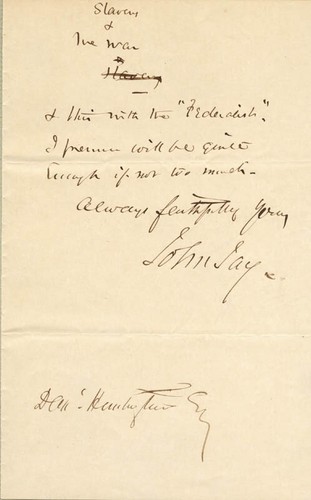 Slavery
&
The War
Slavery
& this with the "Federalist".
I presume will be quite
enough if not too much.
Always faithfully yours,
John Jay.
Danl. Huntington Esq